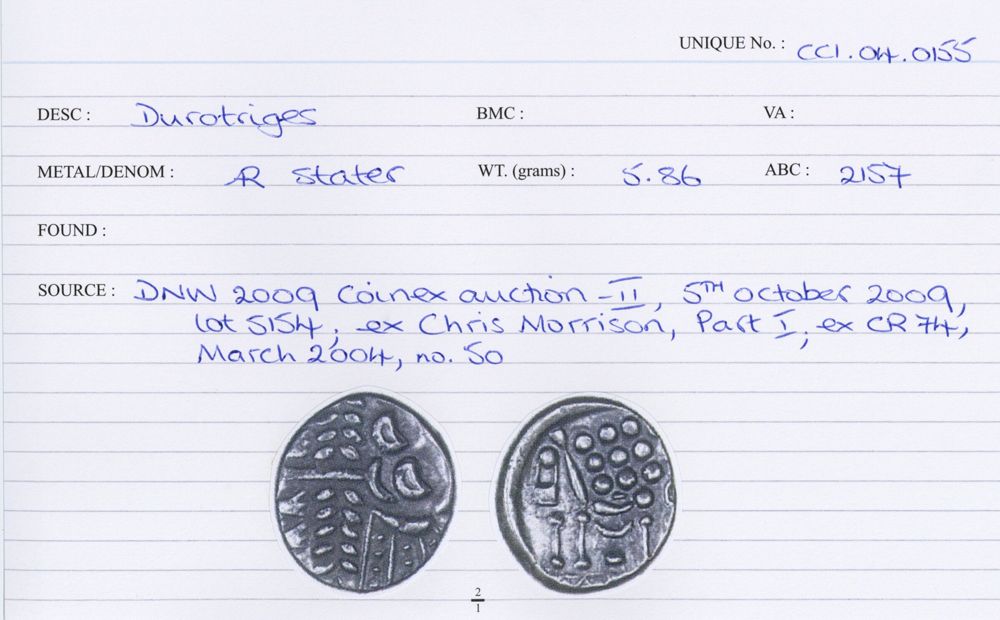 UNIQUE No. : CCI.04.0155
DESC : Durotriges BMC : VA :
METAL/DENOM : AR stater WT. (grams) : 5.86 ABC : 2157
FOUND :
SOURCE : DNW 2009 Coinex auction - II, 5TH October 2009,
lot 5154, ex Chris Morrison, Part I, ex CR 74,
March 2004, no. 50
2
1